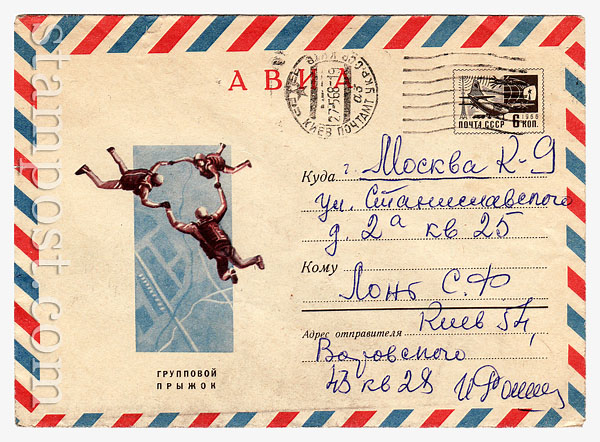 stampost.com
АВИА
КИЕВ ПОЧТАМТ УКР.ССР
27568-19
аз
6 КОП.
1966
ПОЧТА СССР
Куда г. Москва К-9
ул. Станиславского
д. 2а кв 25
Кому
Лонт С.Ф
Адрес отправителя Киев 54,
Воровского
43 кв 28
ГРУППОВОЙ
ПРЫЖОК